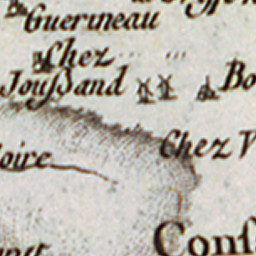 Guerineau
Chez
Joußand
Bo
Chez V
oire
Conſ